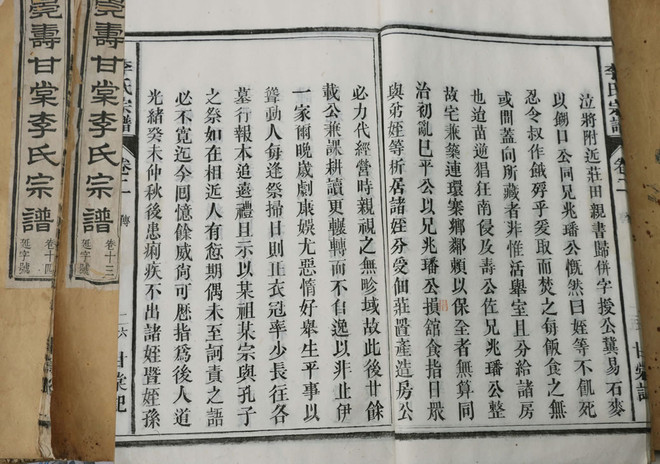 李氏宗譜
卷二
甘棠記
泣將附近莊田親書歸併字授公冀易石麥
以餬口公同兄兆璠公慨然曰姪等不飢死
忍令叔作餓殍乎爰取而焚之每飯食之無
或間蓋向所藏者非惟活舉室且分給諸房
也迨苗逆猖狂南侵及壽公佐兄兆璠公整
故宅兼築連環寨鄉鄰賴以保全者無算同
治初亂巳平公以兄兆璠公損舘食指日眾
與弟姪等析居諸姪分受佃莊置產造房公
必力代經營時親視之無畛域故此後廿餘
載公兼課耕讀更輾轉而不自逸以非止伊
一家爾晚歲劇康娛尤惡惰好舉生平事以
聳動人每逢祭掃日則正衣冠率少長往各
墓行報本追遠禮且示以某祖某宗與孔子
之祭如在相近人有愆期偶未至訶責之語
必不寬迄今囘憶餘威尚可歷指為後人道
光緒癸未仲秋後患痢疾不出諸姪暨姪孫
李氏宗譜
卷十二
傳
二六
甘棠記
亮壽甘棠李氏宗譜
卷十三
延字號
亮壽甘棠李氏宗譜
卷十四
延字號